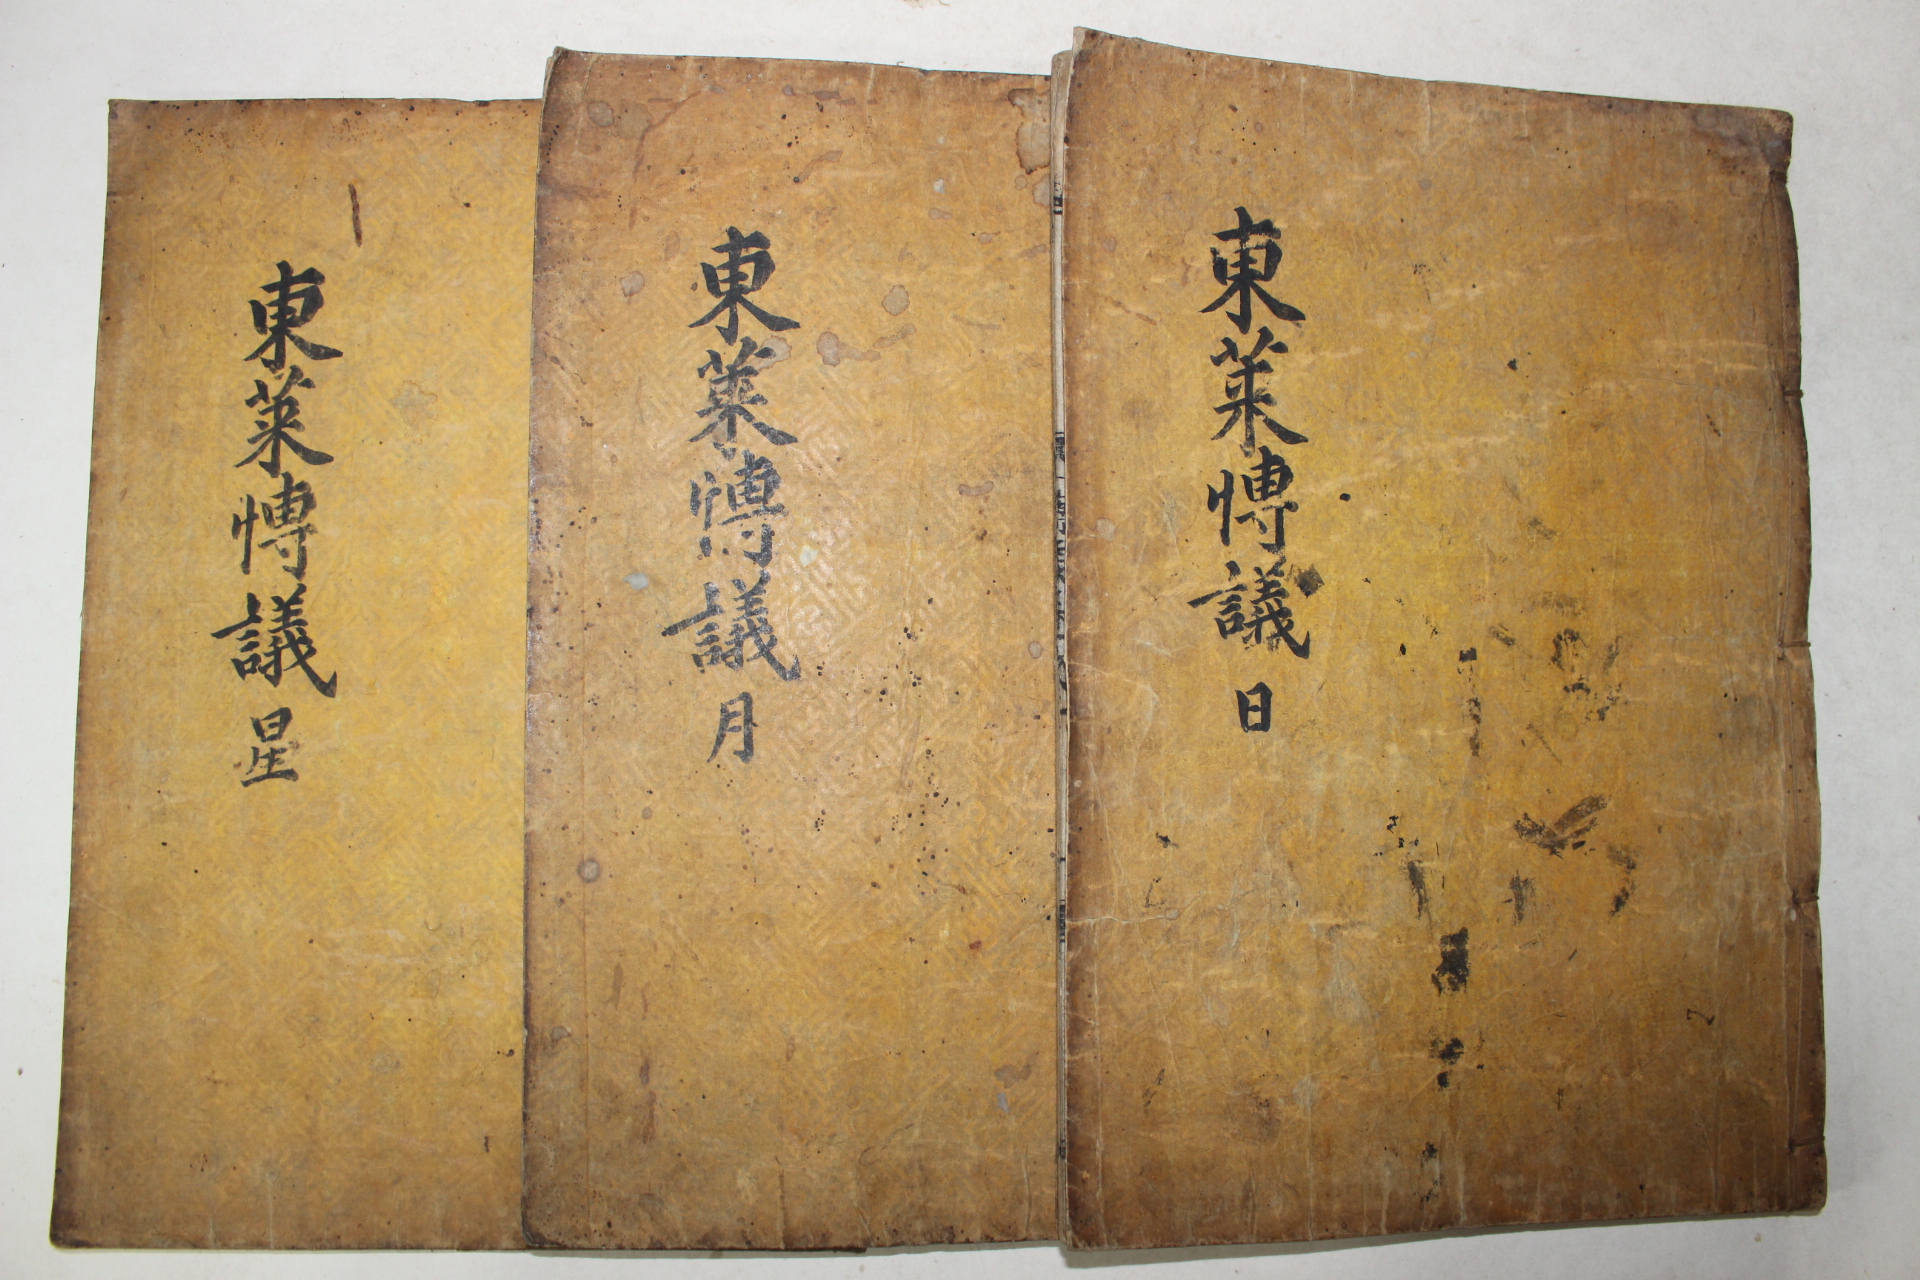 東萊愽議 日
東萊愽議 月
東萊愽議 星